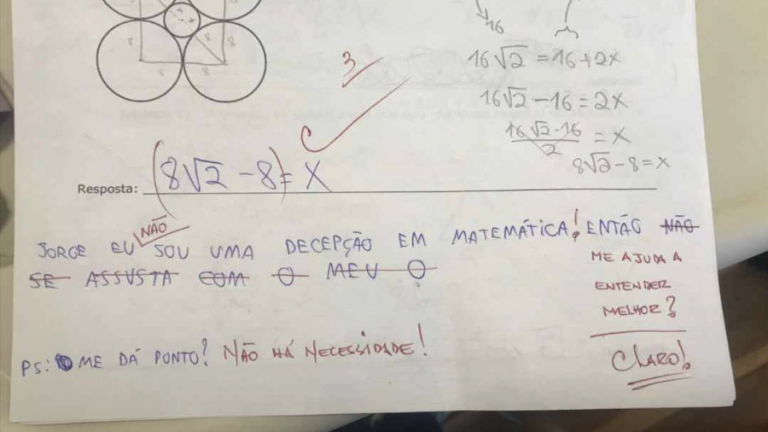 8
8
8
16
16√2 = 16+2x
3
16√2 - 16 = 2x
16√2-16 / 2 = x
8√2 - 8 = x
C
Resposta: (8√2 - 8) = x
NÃO
JORGE EU SOU UMA DECEPÇÃO EM MATEMÁTICA! ENTÃO NÃO
SE ASSUSTA COM O MEU O
ME AJUDA A
ENTENDER
MELHOR?
PS: ME DÁ PONTO? NÃO HÁ NECESSIDADE!
CLARO!